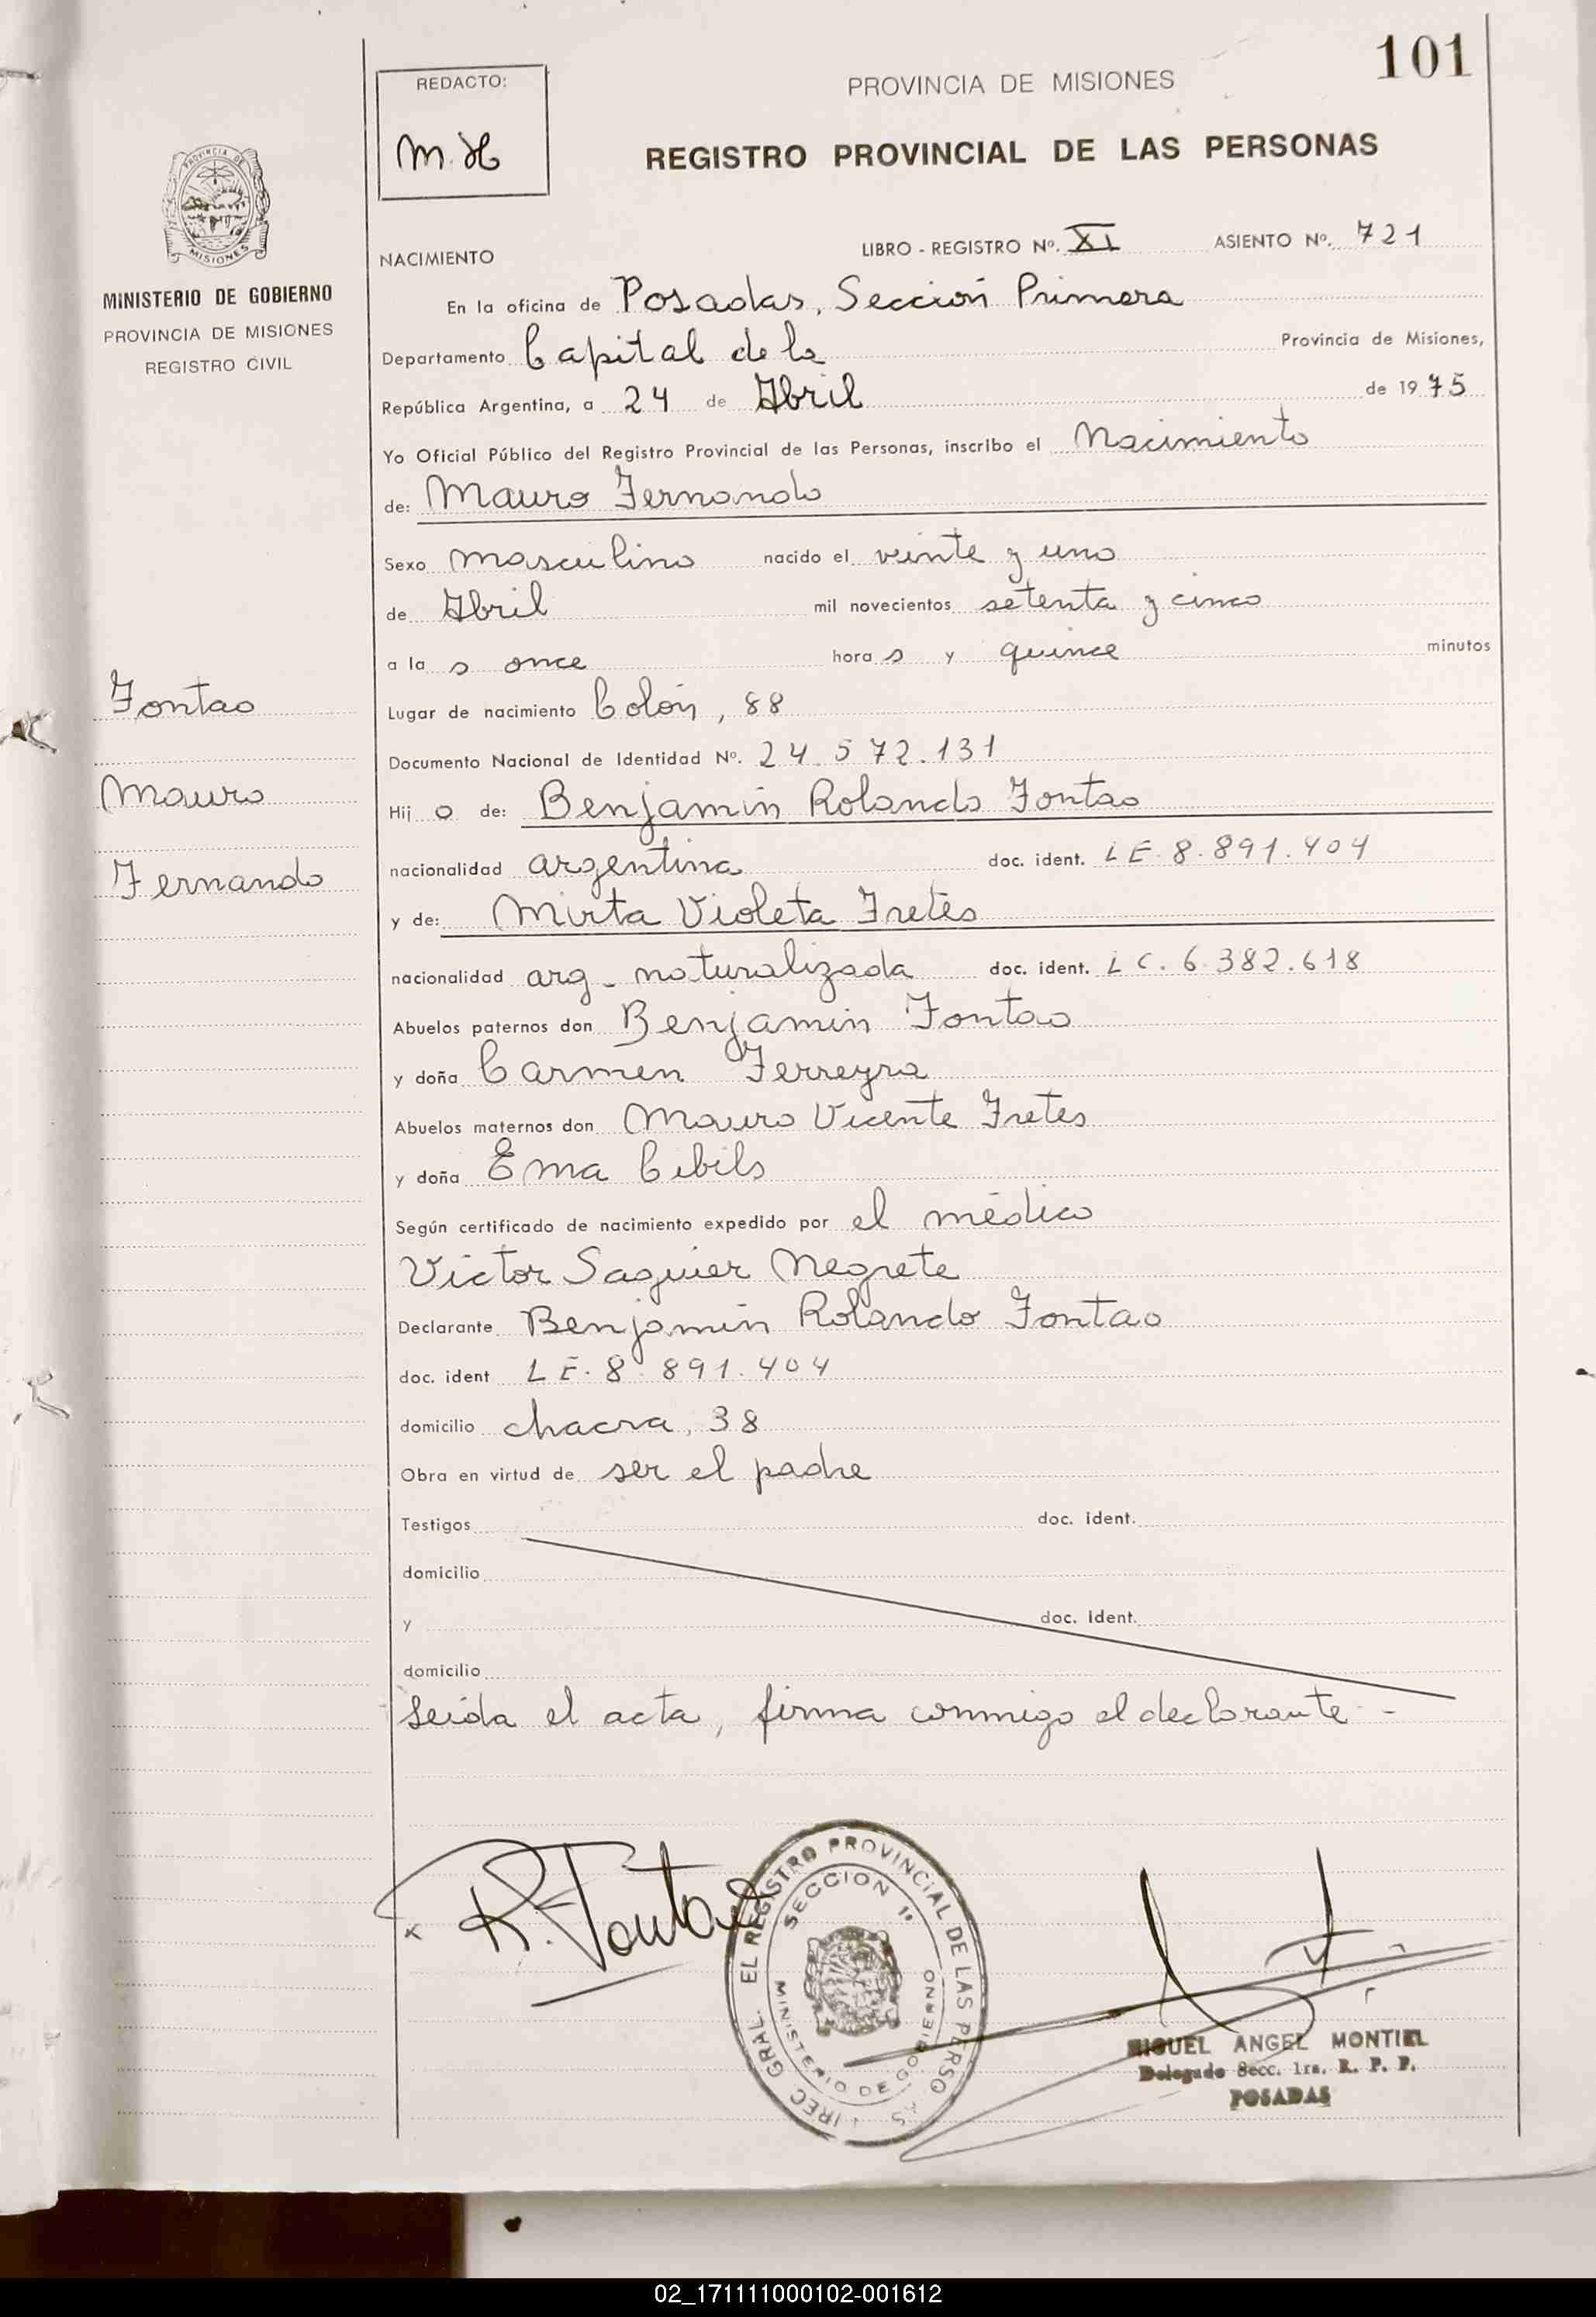 101
REDACTO:
M.H
PROVINCIA DE MISIONES
REGISTRO PROVINCIAL DE LAS PERSONAS
PROVINCIA DE MISIONES
MINISTERIO DE GOBIERNO
PROVINCIA DE MISIONES
REGISTRO CIVIL
NACIMIENTO LIBRO - REGISTRO Nº. XI ASIENTO Nº. 721
En la oficina de Posadas, Sección Primera
Departamento Capital de la Provincia de Misiones,
República Argentina, a 24 de Abril de 1975
Yo Oficial Público del Registro Provincial de las Personas, inscribo el Nacimiento
de: Mauro Fernando
Sexo masculino nacido el veinte y uno
de Abril mil novecientos setenta y cinco
a la s once hora s y quince minutos
Fontao
Mauro
Fernando
Lugar de nacimiento Colón, 88
Documento Nacional de Identidad Nº. 24.572.131
Hij o de: Benjamín Rolando Fontao
nacionalidad argentina doc. ident. LE. 8.891.404
y de: Mirta Violeta Fretes
nacionalidad arg. naturalizada doc. ident. LC. 6.382.618
Abuelos paternos don Benjamín Fontao
y doña Carmen Ferreyra
Abuelos maternos don Mauro Vicente Fretes
y doña Ema Cibils
Según certificado de nacimiento expedido por el médico
Victor Saguier Negrete
Declarante Benjamín Rolando Fontao
doc. ident LE. 8.891.404
domicilio chacra, 38
Obra en virtud de ser el padre
Testigos doc. ident.
domicilio
y doc. ident.
domicilio
Leída el acta, firma conmigo el declarante -
R. Fontao
EL REGISTRO PROVINCIAL DE LAS PERSO AS
IREC. GRAL.
SECCION 1ª
MINISTERIO DE GOBIERNO
MIGUEL ANGEL MONTIEL
Delegado Secc. 1ra. R. P. P.
POSADAS
02_171111000102-001612